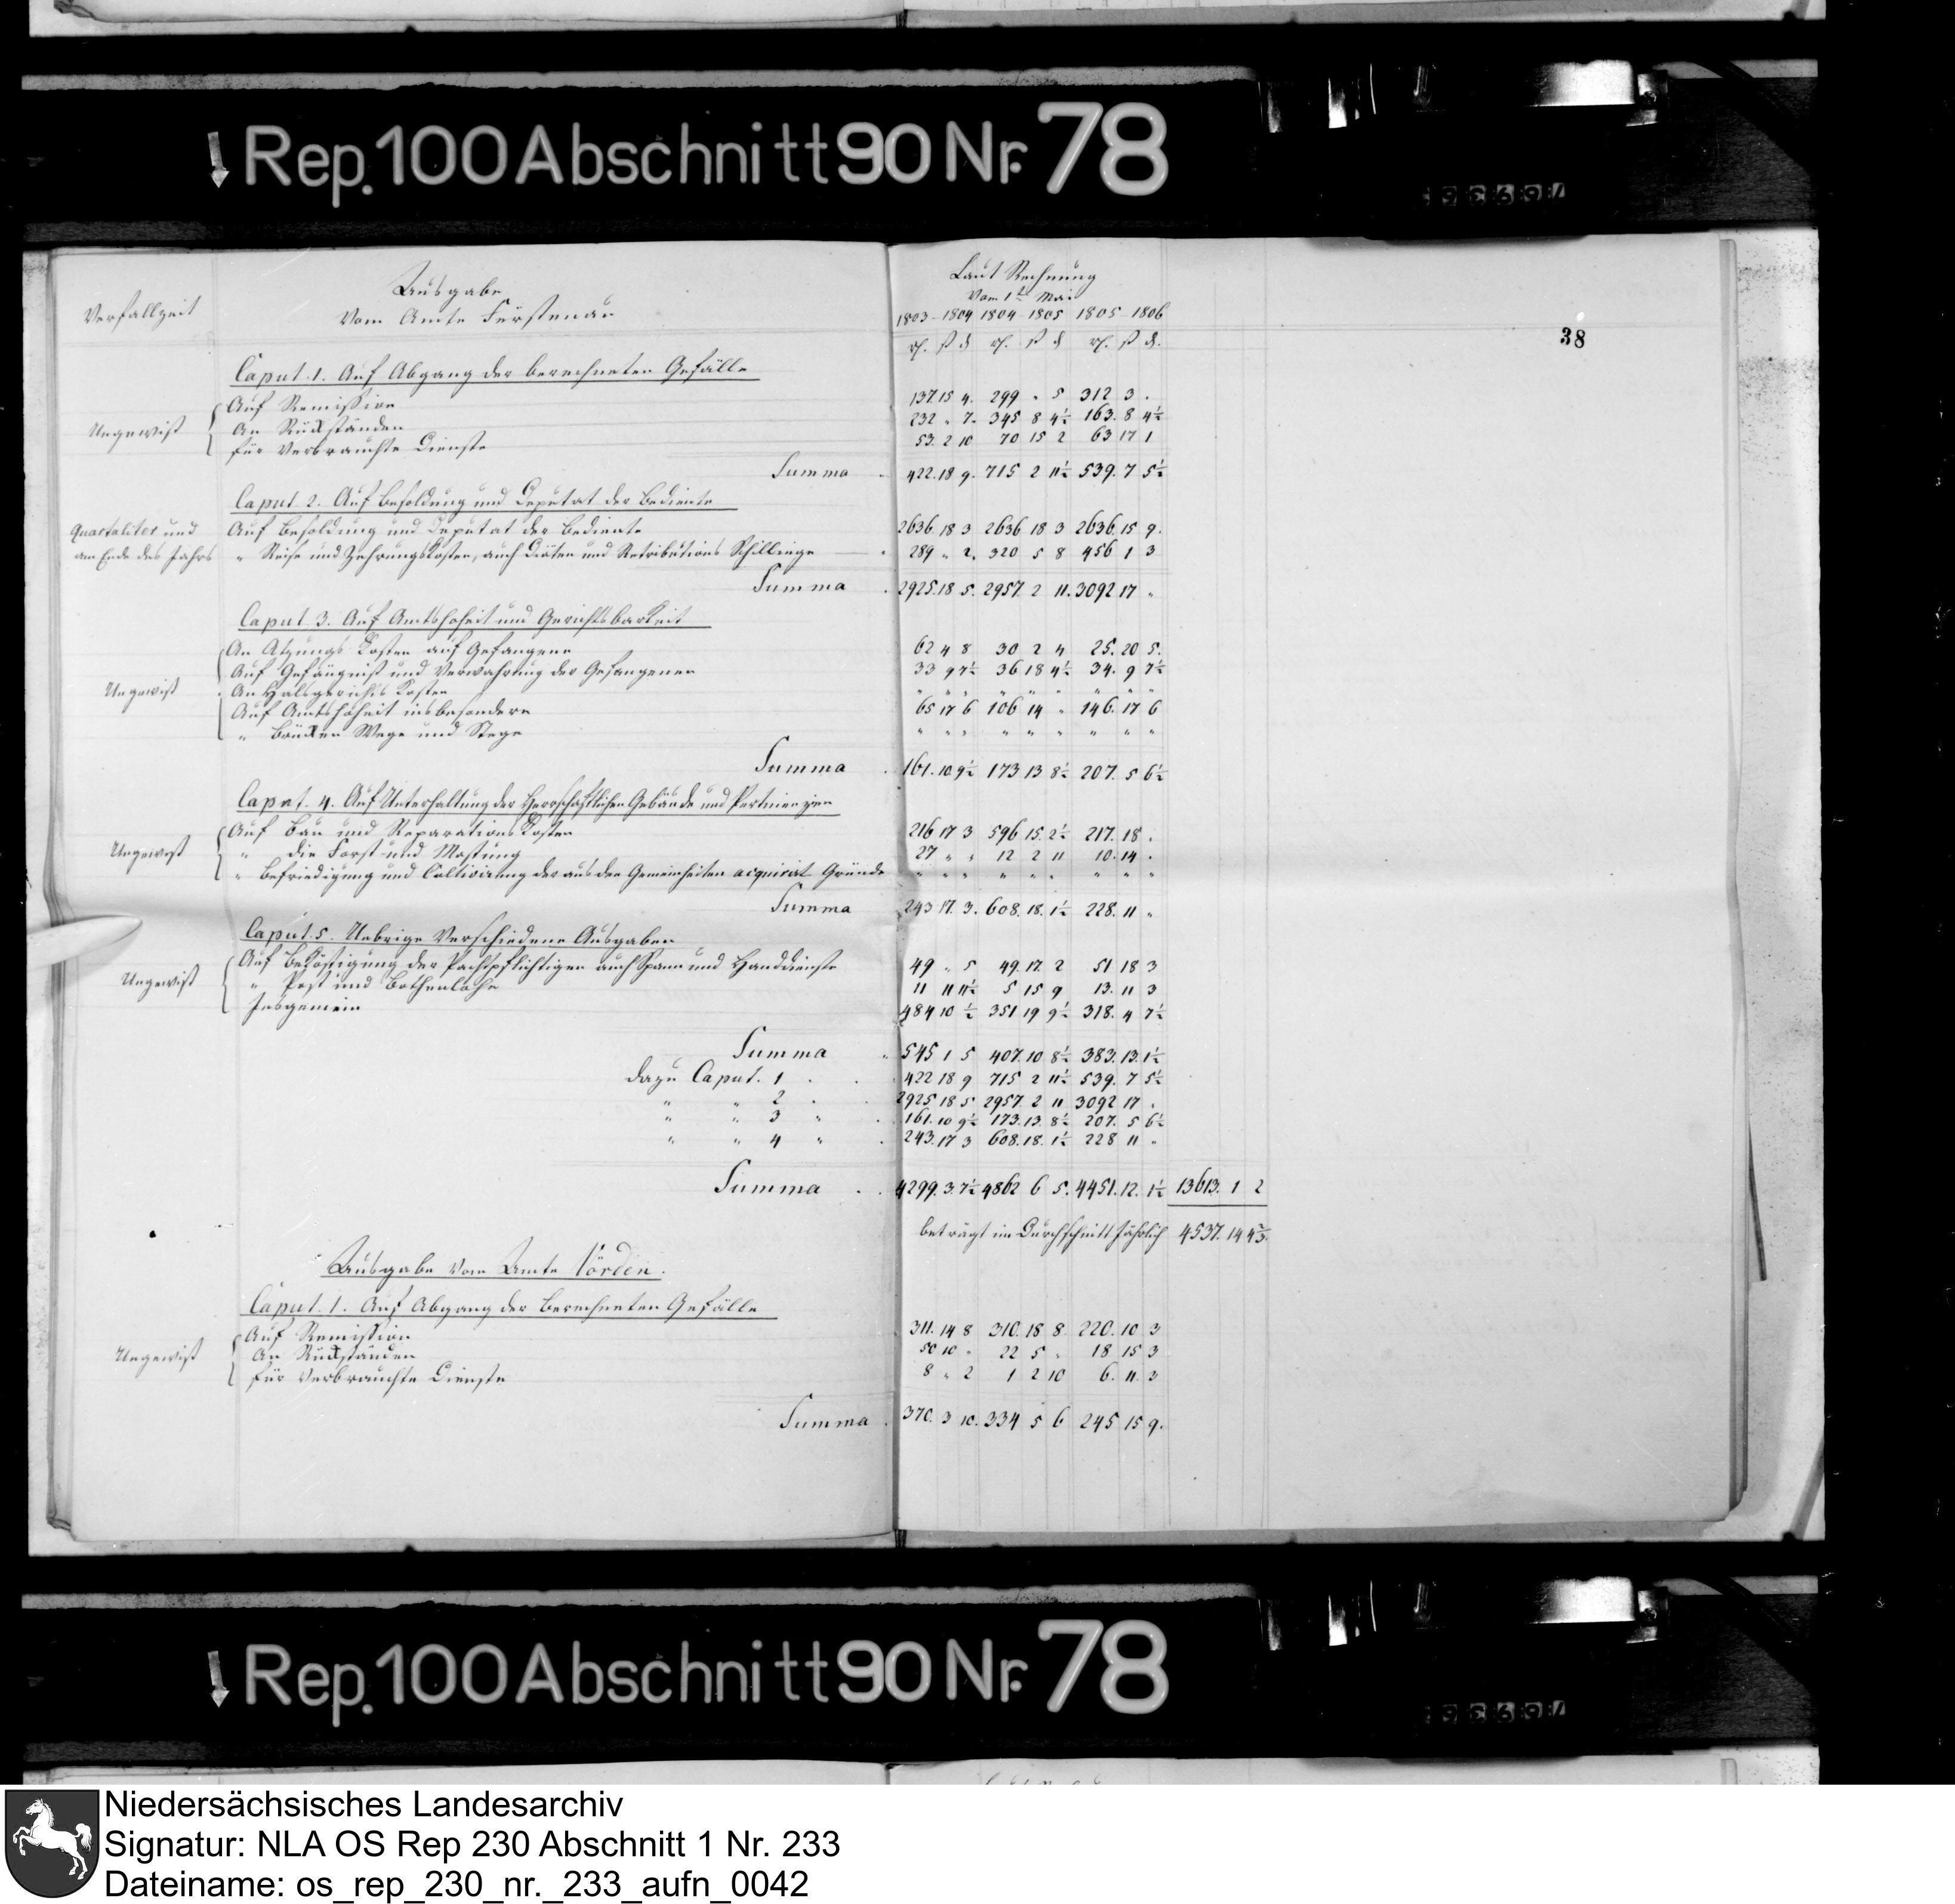 Rep. 100 Abschnitt 90 Nr. 78
Verfallzeit
Ausgabe
Vom Amte Fürstenau
Laut Rechnung
Vom 1ten Mai
1803-1804 1804-1805 1805-1806
rl. ß d rl. ß d rl. ß d.
38
Caput. 1. Auf Abgang der berechneten Gefälle
Ungewiß
Auf Remission 137. 15 4. 299 " 5 312 3 .
An Rückständen 232 " 7. 345 8 4½ 163. 8 4½
für Verbrauchte Dienste 53. 2 10 70 15 2 63 17 1
Summa 422. 18 9. 715 2 11½ 539. 7 5½
Caput 2. Auf Besoldung und Deputat der Bediente
Quartaliter und am Ende des Jahrs
Auf Besoldung und Deputat der Bediente 2636 18 3 2636 18 3 2636. 15 9.
" Reise und Zehrungs Kosten, auch Diäten und Retributions Schillinge 289 " 2. 320 5 8 456 1 3
Summa 2925. 18 5. 2957. 2 11. 3092 17 "
Caput 3. Auf Amtshoheit und Gerichtsbarkeit
Ungewiß
An Atzungs Kosten auf Gefangene 62 4 8 30 2 4 25. 20 5.
Auf Gefängniß und Verwahrung der Gefangenen 33 9 7½ 36 18 4½ 34. 9 7½
An Halsgerichts Kosten " " " " " " " " "
Auf Amtshoheit insbesondere 65 17 6 106 14 " 146. 17 6
" Brücken Wege und Stege " " " " " " " " "
Summa 161. 10 9½ 173 13 8½ 207. 5 6½
Caput. 4. Auf Unterhaltung der Herrschaftlichen Gebäude und Pertinenzien
Ungewiß
Auf Bau und Reparations Kosten 216 17 3 596 15. 2½ 217. 18 .
" die Forst und Mastung 27 " " 12 2 11 10. 14 .
" Befriedigung und Cultivirung der aus den Gemeinheiten acquirirt Gründe " " " " " " " " "
Summa 243 17. 3. 608. 18. 1½ 228. 11 "
Caput. 5. Uebrige Verschiedene Ausgaben
Ungewiß
Auf Beköstigung der Pachtpflichtigen auch Spann und Handdienste 49 " 5 49. 17. 2 51 18 3
" Post und Bothenlohn 11 11 11½ 5 15 9 13. 11 3
Insgemein 484 10 ½ 351 19 9½ 318. 4 7½
Summa 545 1 5 407. 10 8½ 383. 13. 1½
dazu Caput. 1 422 18 9 715 2 11½ 539. 7 5½
" " 2 2925 18 5 2957. 2 11 3092 17 .
" " 3 " 161. 10 9½ 173. 13. 8½ 207. 5 6½
" " 4 " 243. 17 3 608. 18. 1½ 228 11 "
Summa 4299. 3. 7½ 4862 6 5. 4451. 12. 1½ 13613. 1 2
beträgt im Durchschnitt Jährlich 4537. 14 4⅔.
Ausgabe vom Amte Vörden.
Caput. 1. Auf Abgang der berechneten Gefälle
Ungewiß
Auf Remission 311. 14 8 310. 18 8. 220. 10 3
An Rückständen 50 10 " 22 5 " 18 15 3
für Verbrauchte Dienste 8 " 2 1 2 10 6. 11. 3
Summa 370. 3 10. 334 5 6 245 15 9.
Rep. 100 Abschnitt 90 Nr. 78
Niedersächsisches Landesarchiv
Signatur: NLA OS Rep 230 Abschnitt 1 Nr. 233
Dateiname: os_rep_230_nr._233_aufn_0042